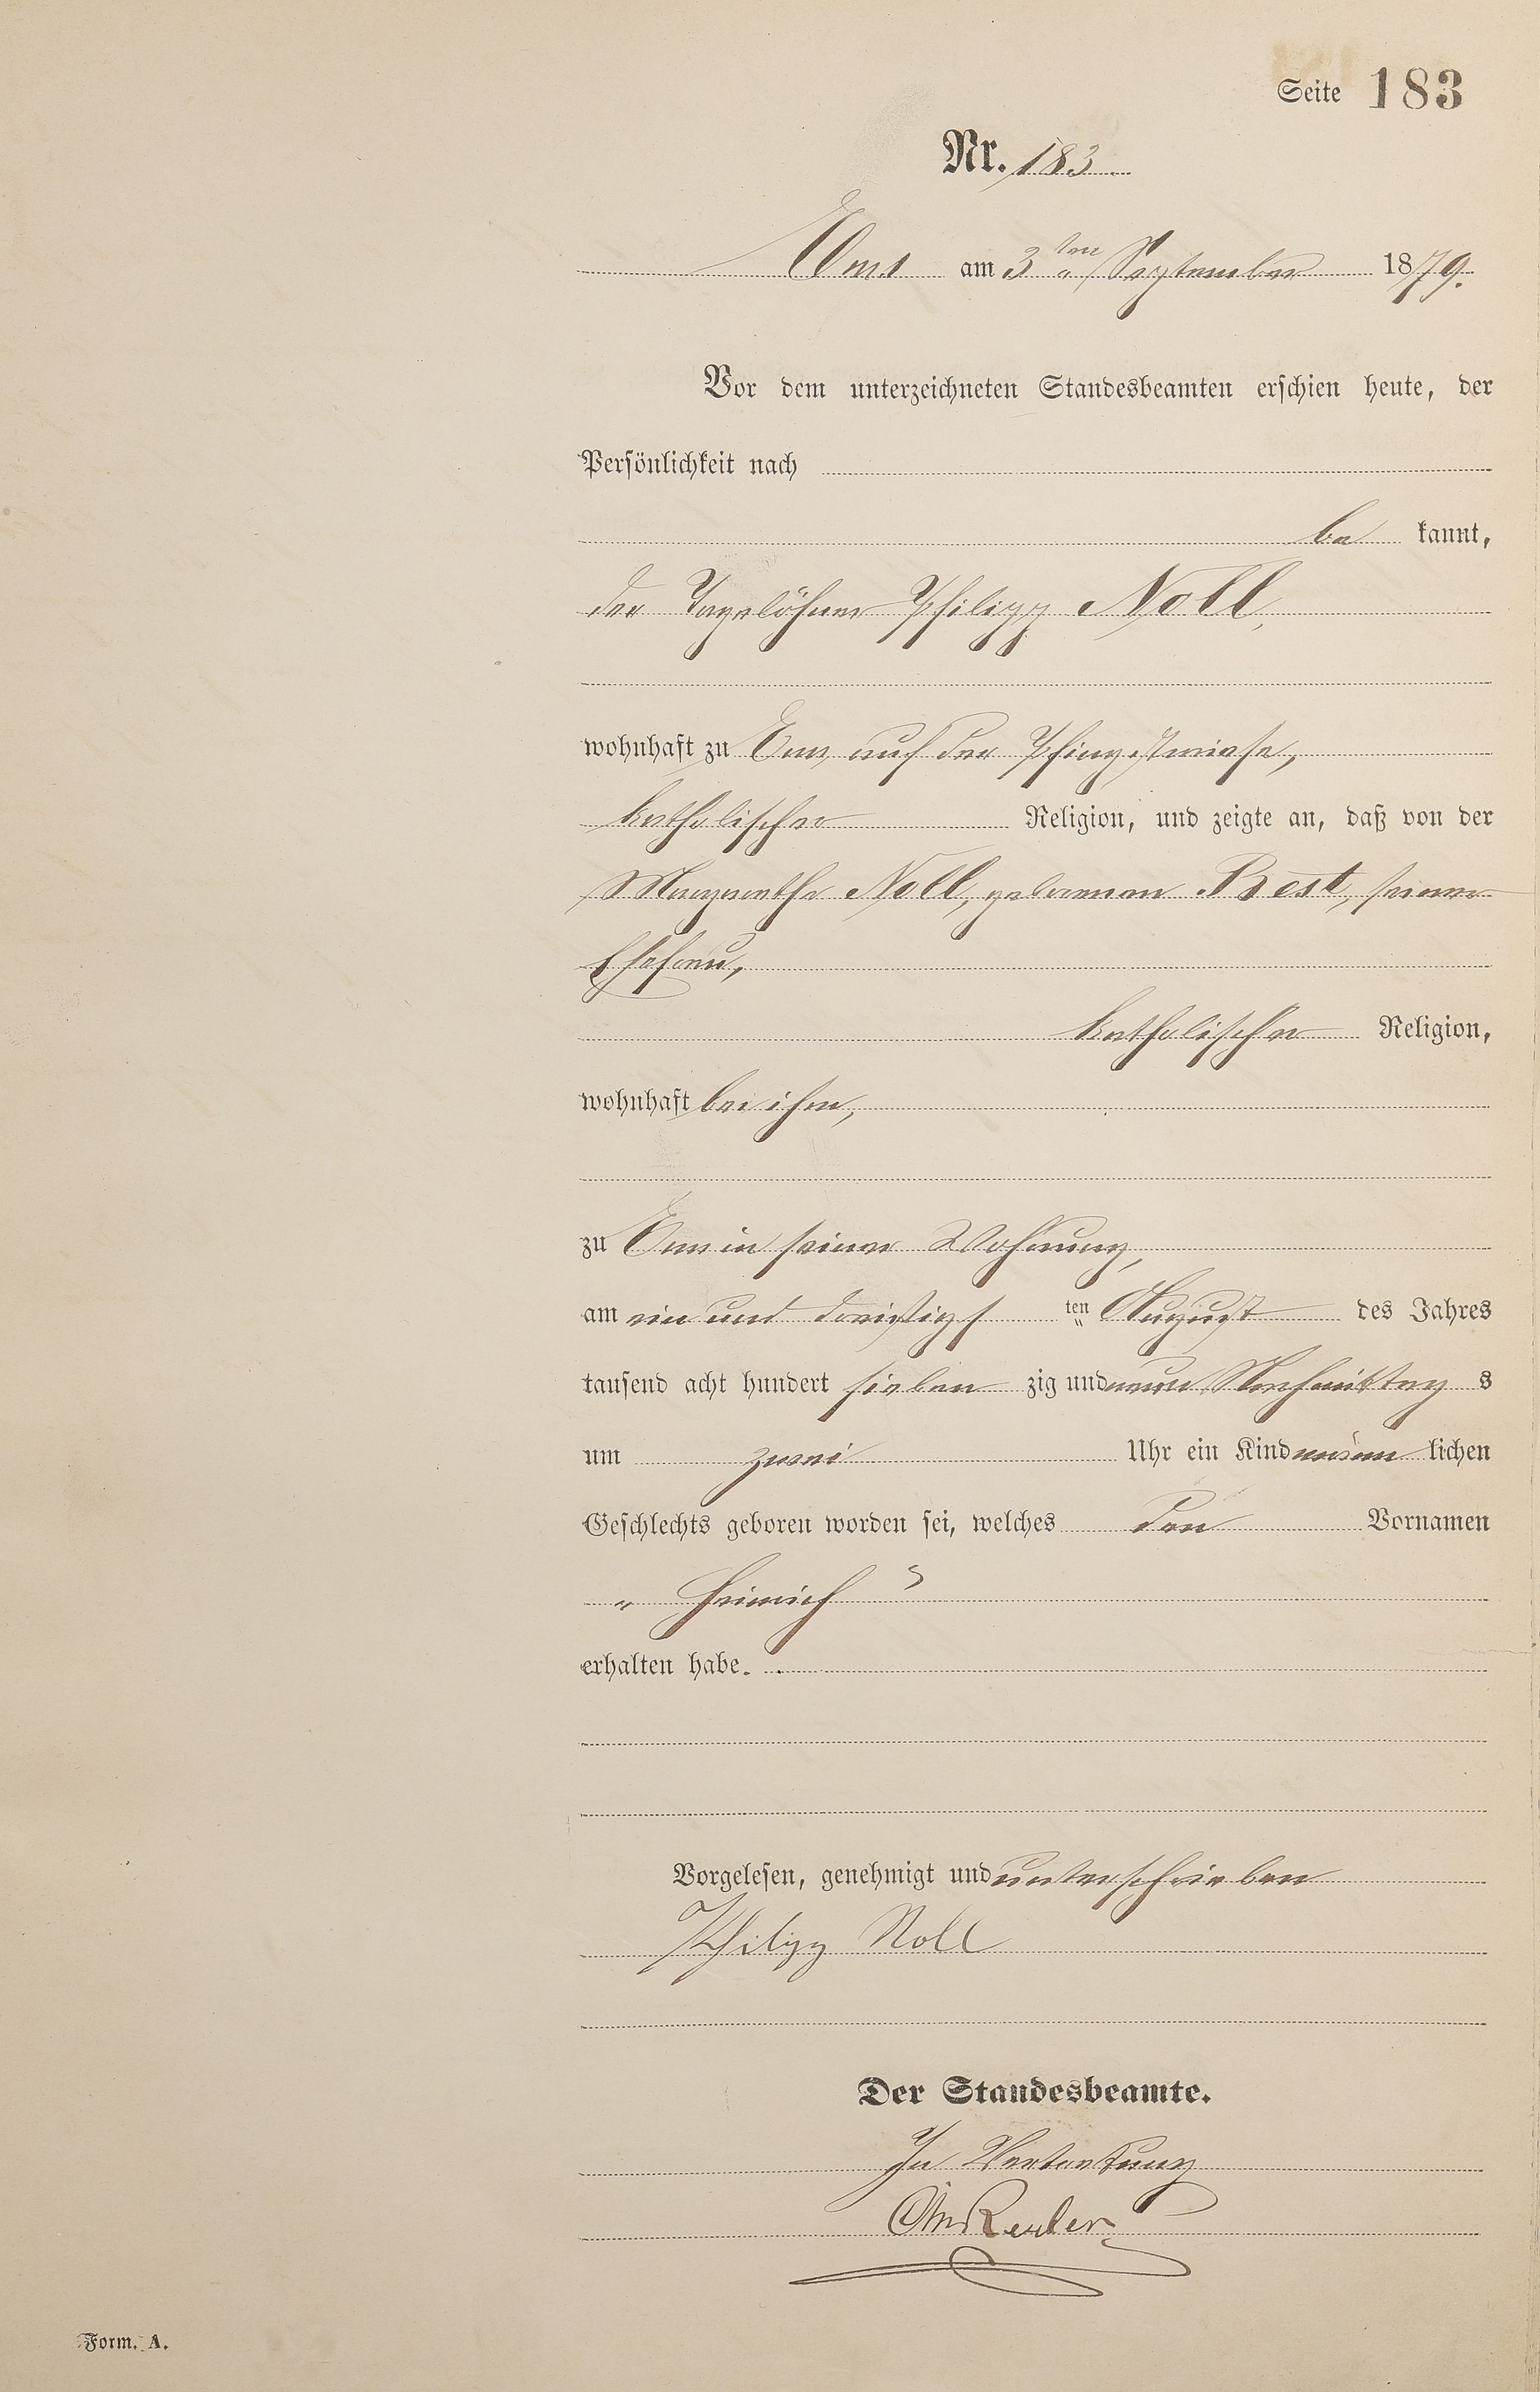 Seite 183
Nr. 183
Ems am 3ten September 1879.
Vor dem unterzeichneten Standesbeamten erschien heute, der
Persönlichkeit nach
be kannt,
der Tagelöhner Philipp Noll,
wohnhaft zu Ems, auf der Pfingstwiese,
katholischer Religion, und zeigte an, daß von der
Margarethe Noll, geborenen Best, seiner
Ehefrau,
katholischer Religion,
wohnhaft bei ihm,
zu Ems in seiner Wohnung,
am ein und dreißigs ten August des Jahres
tausend acht hundert sieben zig und neun Nachmittag s
um zwei Uhr ein Kind männ lichen
Geschlechts geboren worden sei, welches den Vornamen
„ Heinrich "
erhalten habe.
Vorgelesen, genehmigt und unterschrieben
Philipp Noll
Der Standesbeamte.
In Vertretung
Reuler
Form. A.